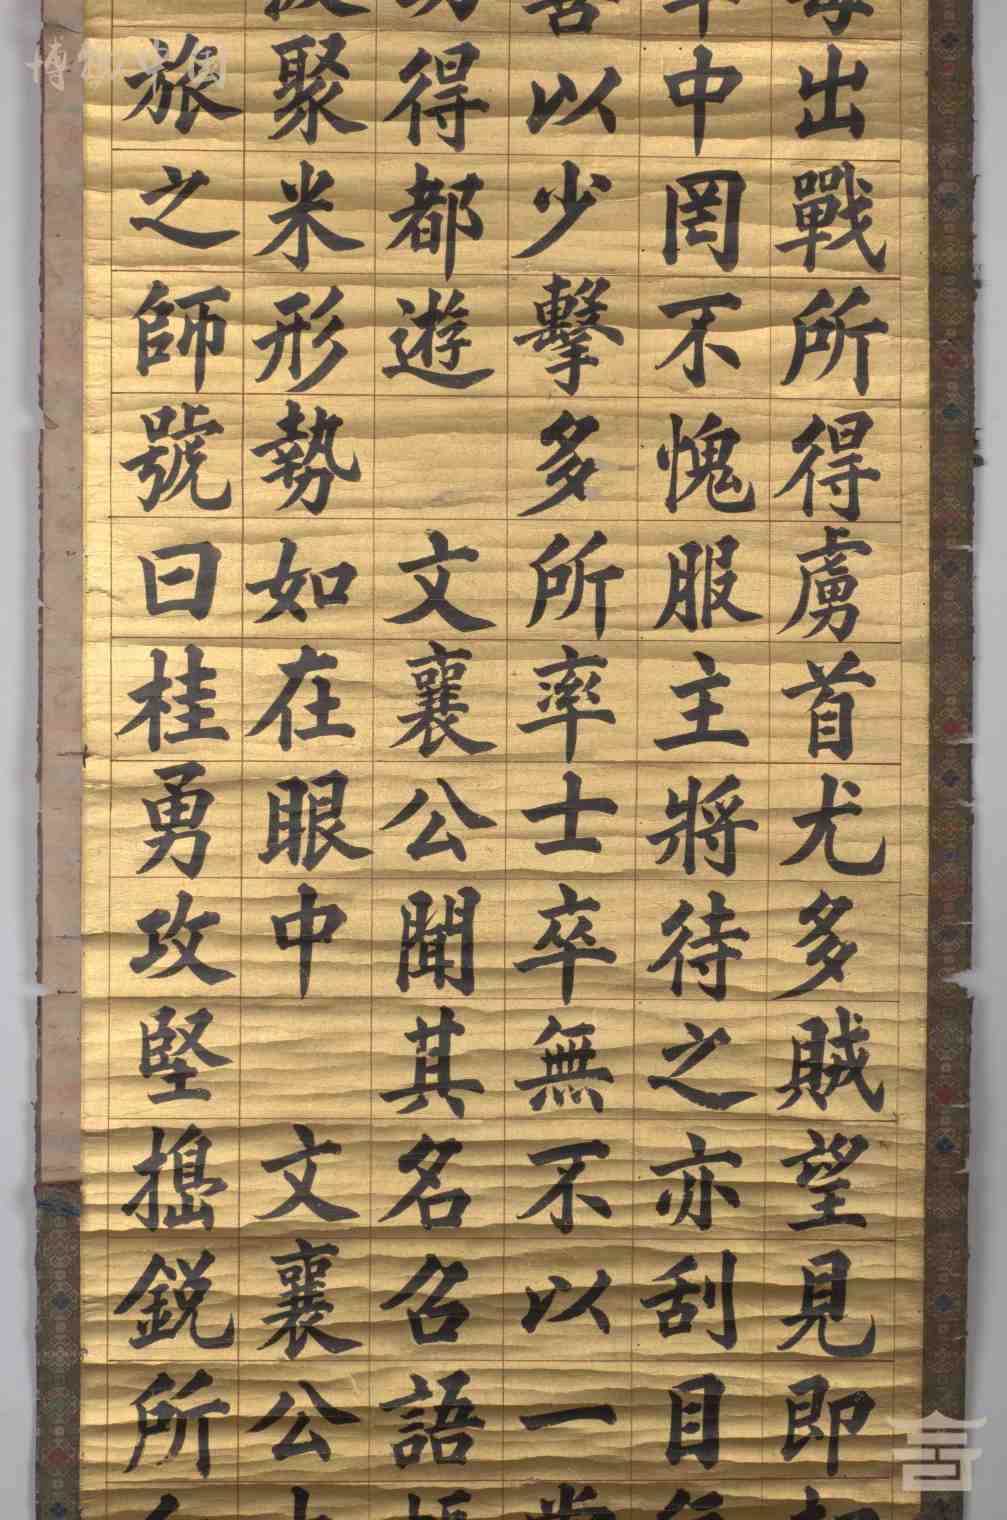 每出戰所得虜首尤多賊望見即
中罔不愧服主將待之亦刮目
以少擊多所率士卒無不以一
得都遊 文襄公聞其名召語
聚米形勢如在眼中 文襄公
旅之師號曰桂勇攻堅搗鋭所